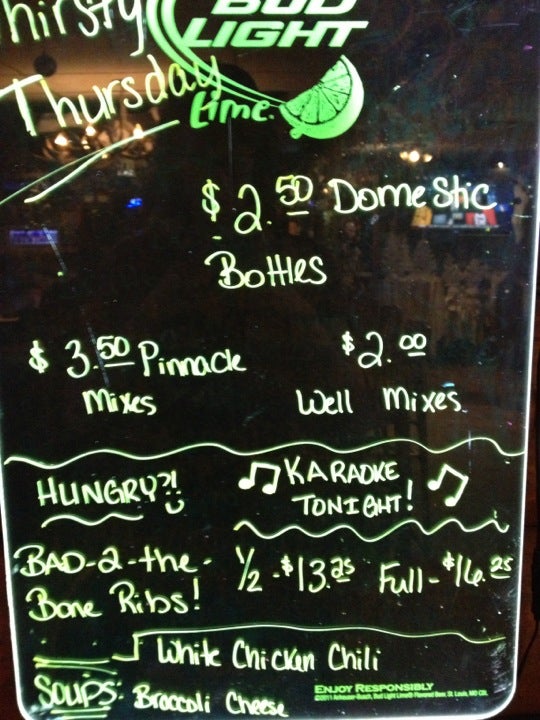 Thirsty
Thursday
BUD
LIGHT
Lime.
$2.50 Domestic
Bottles
$3.50 Pinnacle
Mixes
$2.00
Well Mixes
HUNGRY?!
KARAOKE
TONIGHT!
BAD-2-the-
Bone Ribs!
1/2 - $13.25 Full - $16.25
White Chicken Chili
SOUPS: Broccoli Cheese
ENJOY RESPONSIBLY
©2011 Anheuser-Busch, Bud Light Lime® Flavored Beer, St. Louis, MO